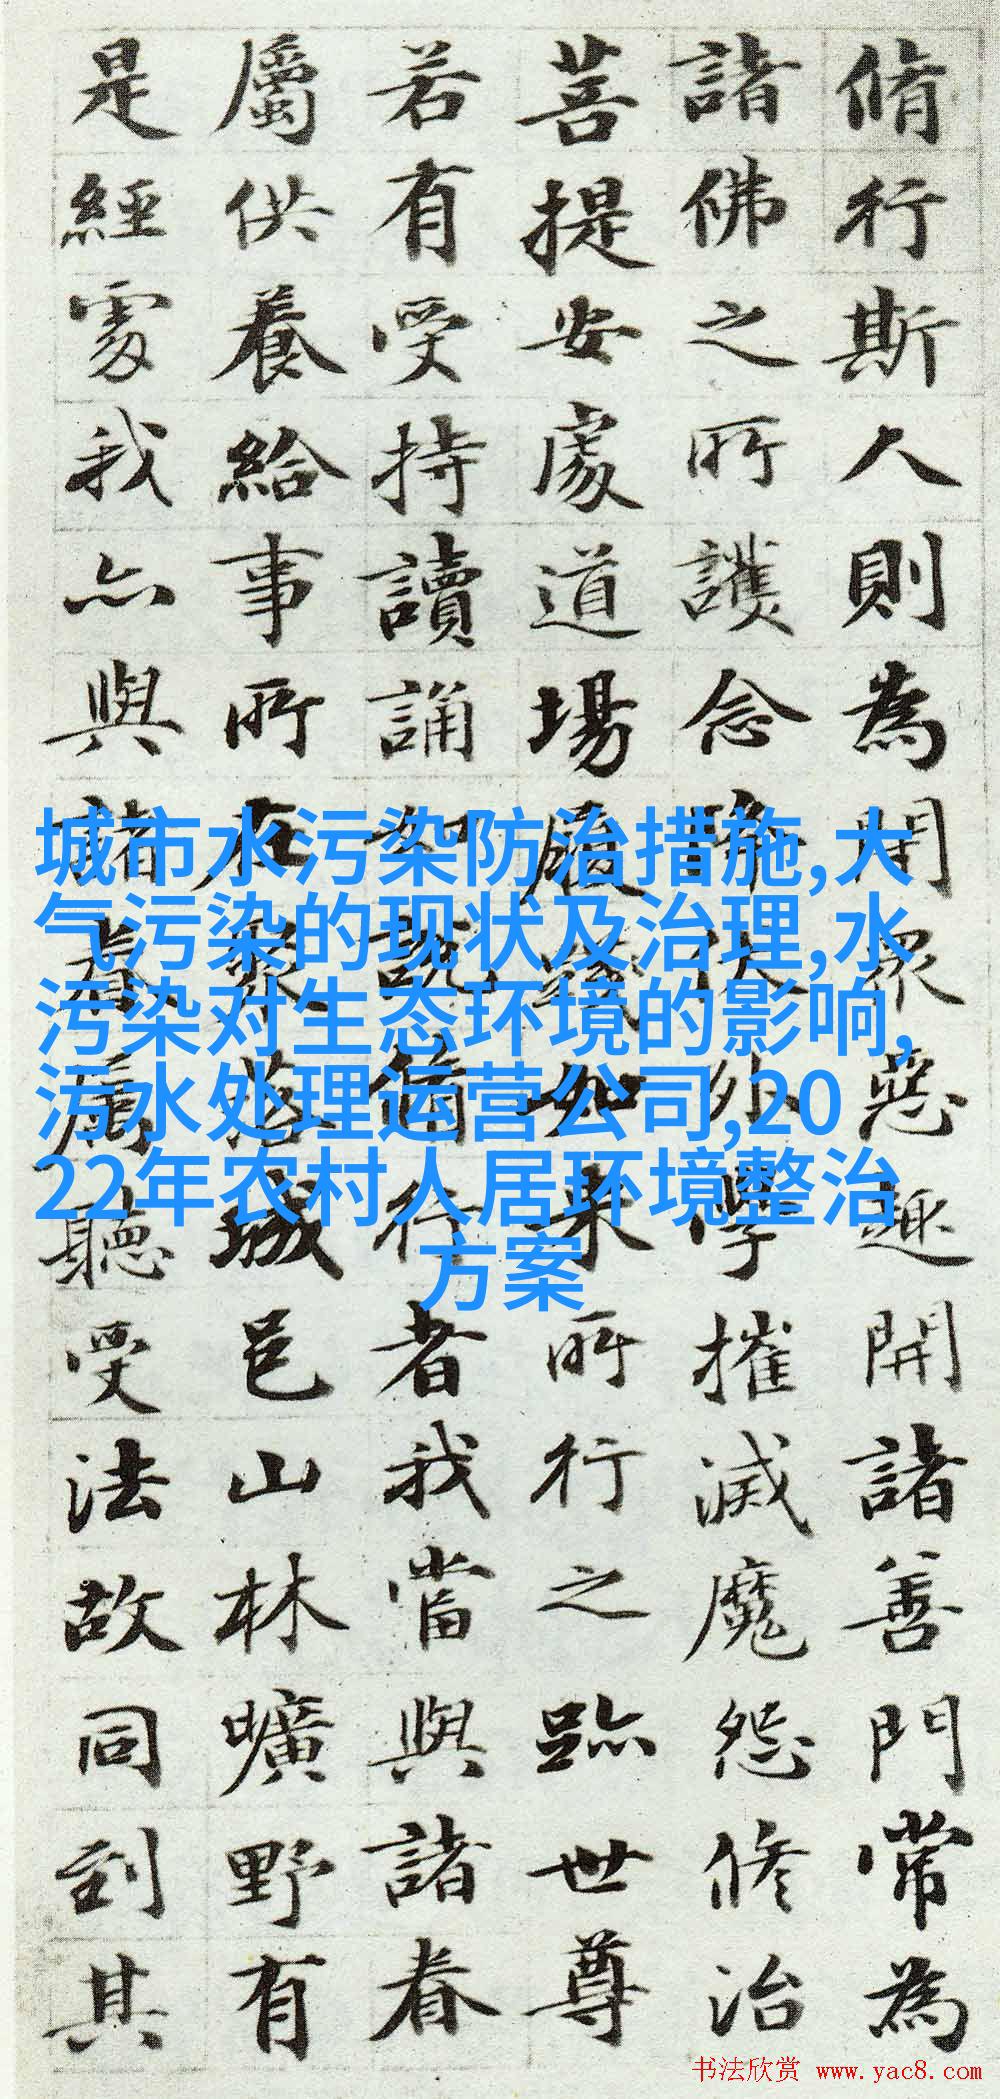 脩行斯人則為閇衆惡趣開諸善門常為
諸佛之所護念降伏外學摧滅魔怨修治
菩提安處道場履踐如來所行之跡世尊
若有受持讀誦如說脩行者我當與諸眷
屬供養給事所在聚落城邑山林曠野有
是經處我亦與諸眷屬聽受法故同到其
城市水污染防治措施,大
气污染的现状及治理,水
污染对生态环境的影响,
污水处理运营公司,20
22年农村人居环境整治
方案
书法欣赏 www.yac8.com